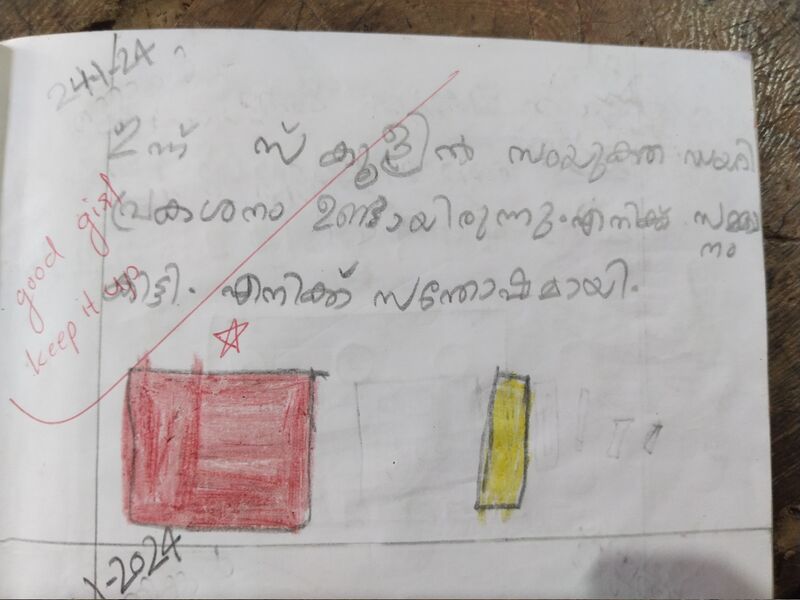 24-1-24
ഇന്ന് സ്കൂളിൽ സംയുക്ത ഡയറി
പ്രകാശനം ഉണ്ടായിരുന്നു. എനിക്ക് സമ്മാ
നം
കിട്ടി. എനിക്ക് സന്തോഷമായി.
good girl
keep it up
1-2024